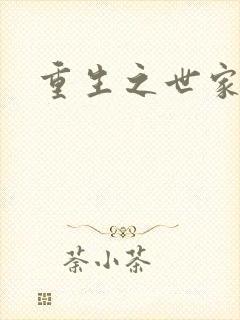 重生之世家
荼小茶